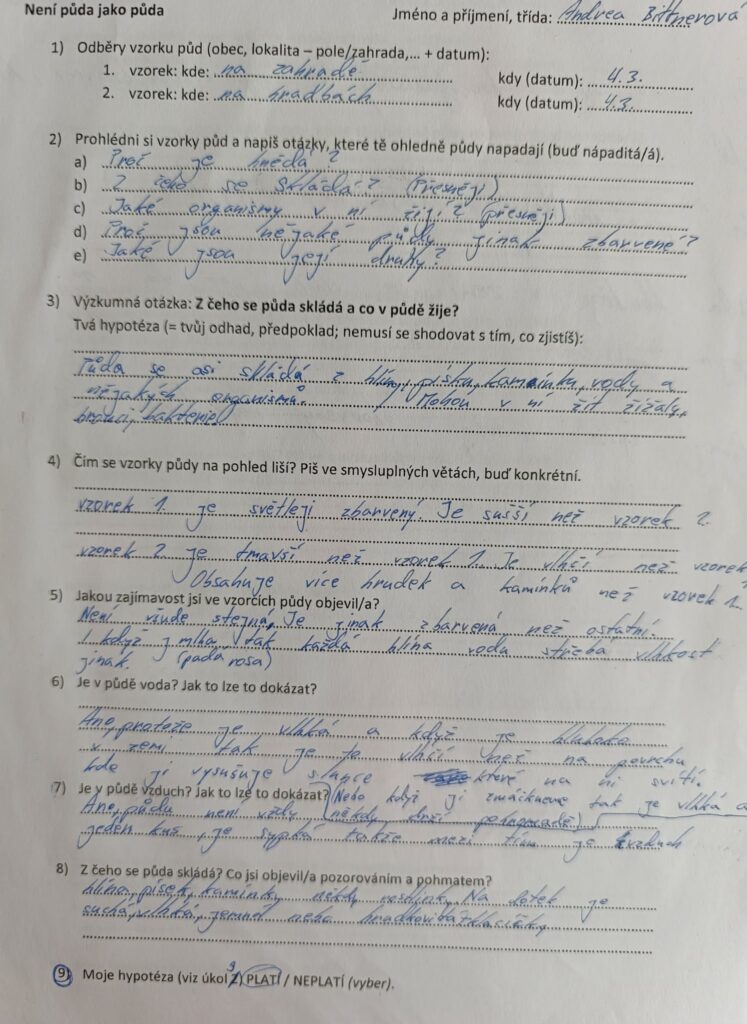 Není půda jako půda
Jméno a příjmení, třída: Andrea Bittnerová
1) Odběry vzorku půd (obec, lokalita – pole/zahrada,... + datum):
1. vzorek: kde: na zahradě kdy (datum): 4.3.
2. vzorek: kde: na hradbách kdy (datum): 4.3.
2) Prohlédni si vzorky půd a napiš otázky, které tě ohledně půdy napadají (buď nápaditá/á).
a) Proč je hnědá?
b) Z čeho se skládá? (Přesněji)
c) Jaké organismy v ní žijí? (přesněji)
d) Proč jsou nějaké půdy jinak zbarvené?
e) Jaké jsou její druhy?
3) Výzkumná otázka: Z čeho se půda skládá a co v půdě žije?
Tvá hypotéza (= tvůj odhad, předpoklad; nemusí se shodovat s tím, co zjistíš):
Půda se asi skládá z hlíny, písku, kamínku, vody a
nějakých organismů. Mohou v ní žít žížaly,
brouci, bakterie
4) Čím se vzorky půdy na pohled liší? Piš ve smysluplných větách, buď konkrétní.
vzorek 1. je světleji zbarvený. Je sušší než vzorek 2.
vzorek 2 je tmavší než vzorek 1. Je vlhčí než vzorek
Obsahuje více hrudek a kamínků než vzorek 1.
5) Jakou zajímavost jsi ve vzorcích půdy objevil/a?
Není všude stejná, Je jinak zbarvená než ostatní.
I když j mlha, tak každá hlína vodu střeba vlhkost
jinak. (padá rosa)
6) Je v půdě voda? Jak to lze to dokázat?
Ano, protože je vlhká a když je hluboko
v zemi tak je to vlhčí než na povrchu
kde ji vysušuje slunce které na ni svítí.
7) Je v půdě vzduch? Jak to lze to dokázat? Nebo když ji zmáčkneme tak je vlhká a
Ano, půdu není vždy (někdy drží pohromadě)
jeden kus, je sypká takže mezi tím je vzduch
8) Z čeho se půda skládá? Co jsi objevil/a pozorováním a pohmatem?
hlína, písek, kamínky, někdy rostlinky. Na dotek je
suchá, vlhká, jemná nebo hrudkovitá
9) Moje hypotéza (viz úkol 3) PLATÍ / NEPLATÍ (vyber).